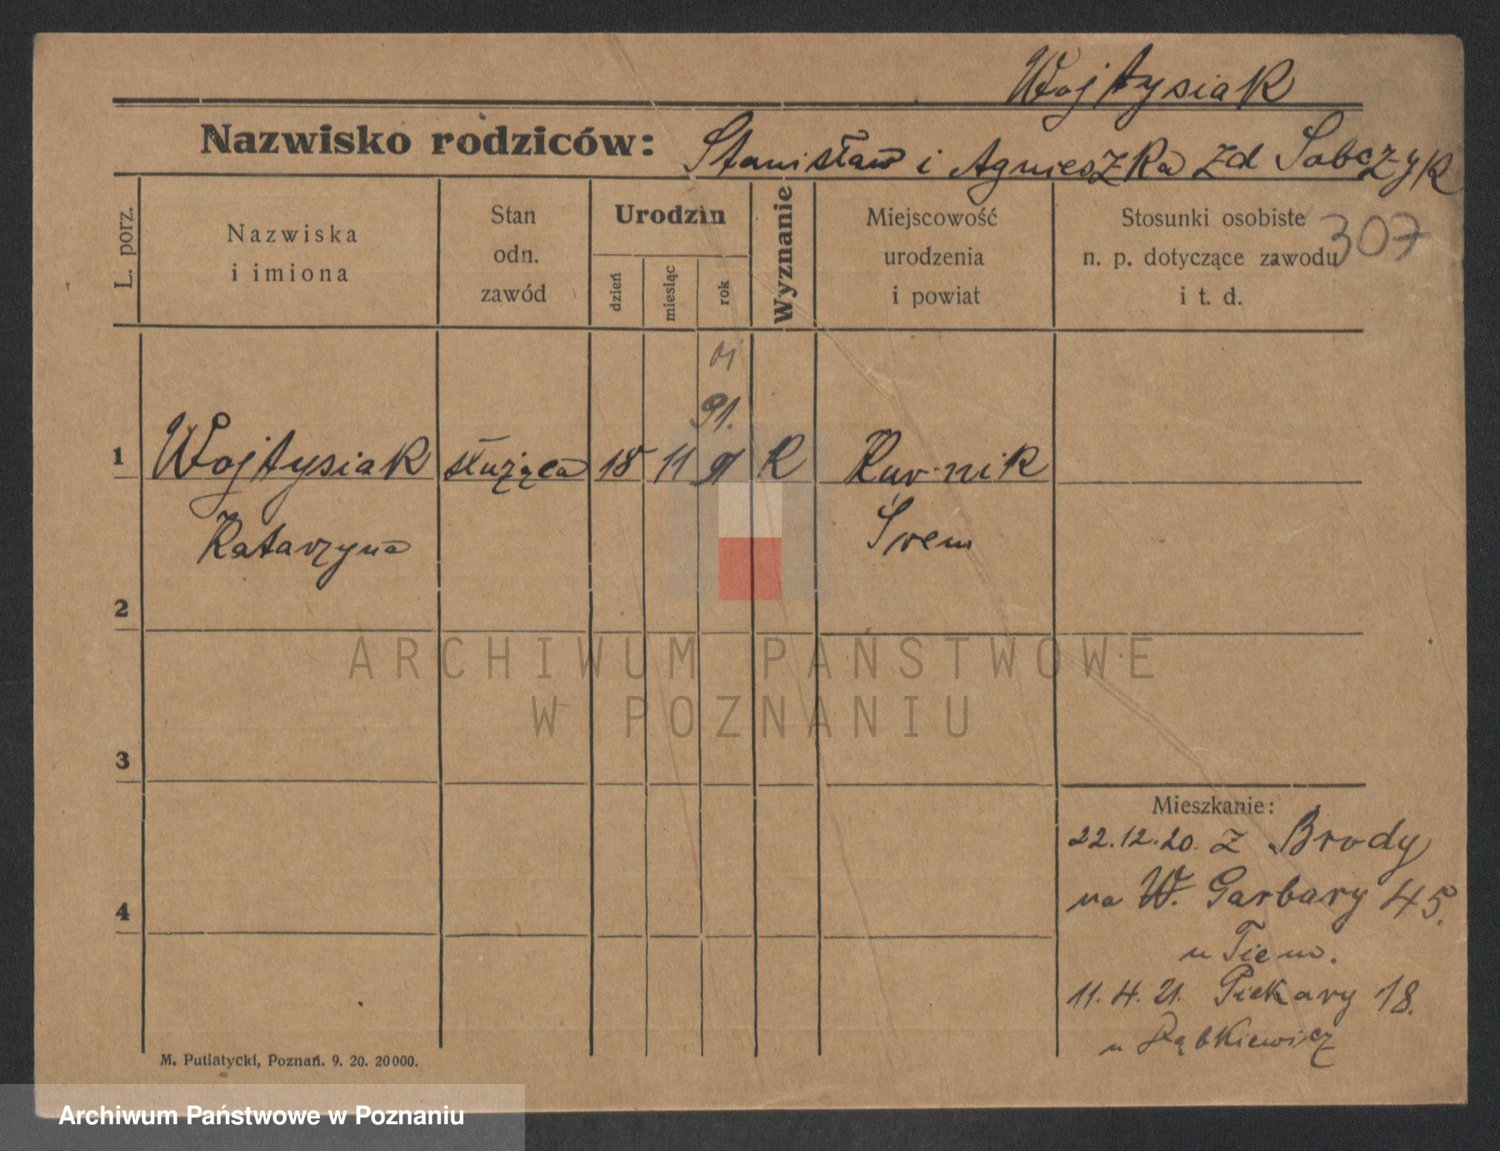 Wojtysiak
Nazwisko rodziców: Stanisław i Agnieszka zd Sobczyk
L. porz.
Nazwiska
i imiona
Stan
odn.
zawód
Urodzin
dzień
miesiąc
rok
Wyznanie
Miejscowość
urodzenia
i powiat
Stosunki osobiste
n. p. dotyczące zawodu
i t. d.
307
91.
1 Wojtysiak służąca 18 11 91 K Kurnik
Katarzyna Śrem
2
ARCHIWUM PAŃSTWOWE
W POZNANIU
3
Mieszkanie:
22.12.20. z Brody
na W. Garbary 45.
4
u Tiem.
11.4.21. Piekary 18.
u Dąbkiewicz
M. Putiatycki, Poznań. 9. 20. 20000.
Archiwum Państwowe w Poznaniu